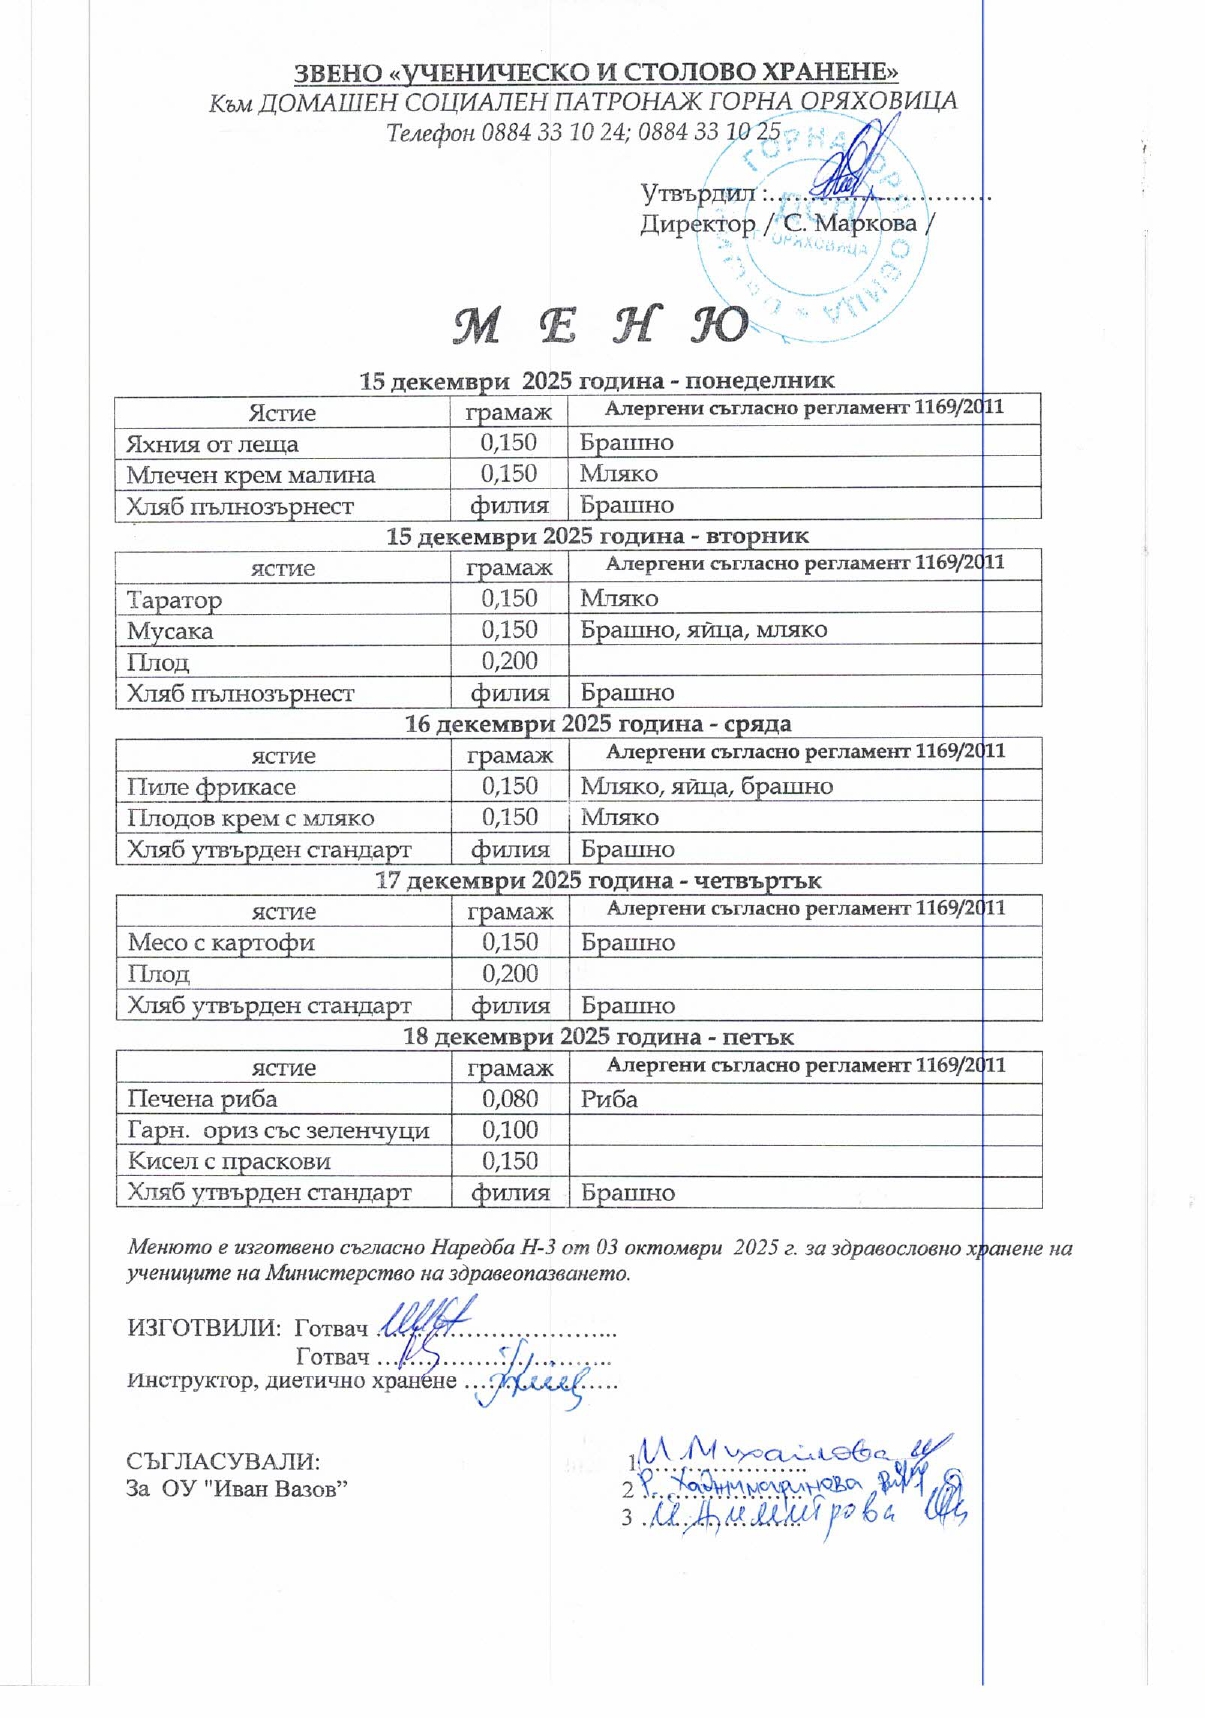 ЗВЕНО «УЧЕНИЧЕСКО И СТОЛОВО ХРАНЕНЕ»
Към ДОМАШЕН СОЦИАЛЕН ПАТРОНАЖ ГОРНА ОРЯХОВИЦА
Телефон 0884 33 10 24; 0884 33 10 25
Утвърдил :……………………
Директор / С. Маркова /
М Е Н Ю
15 декември 2025 година - понеделник
Ястие грамаж Алергени съгласно регламент 1169/2011
Яхния от леща 0,150 Брашно
Млечен крем малина 0,150 Мляко
Хляб пълнозърнест филия Брашно
15 декември 2025 година - вторник
ястие грамаж Алергени съгласно регламент 1169/2011
Таратор 0,150 Мляко
Мусака 0,150 Брашно, яйца, мляко
Плод 0,200
Хляб пълнозърнест филия Брашно
16 декември 2025 година - сряда
ястие грамаж Алергени съгласно регламент 1169/2011
Пиле фрикасе 0,150 Мляко, яйца, брашно
Плодов крем с мляко 0,150 Мляко
Хляб утвърден стандарт филия Брашно
17 декември 2025 година - четвъртък
ястие грамаж Алергени съгласно регламент 1169/2011
Месо с картофи 0,150 Брашно
Плод 0,200
Хляб утвърден стандарт филия Брашно
18 декември 2025 година - петък
ястие грамаж Алергени съгласно регламент 1169/2011
Печена риба 0,080 Риба
Гарн. ориз със зеленчуци 0,100
Кисел с праскови 0,150
Хляб утвърден стандарт филия Брашно
Менюто е изготвено съгласно Наредба Н-3 от 03 октомври 2025 г. за здравословно хранене на
учениците на Министерство на здравеопазването.
ИЗГОТВИЛИ: Готвач ……………………..
Готвач ……………………..
Инструктор, диетично хранене ……………..
СЪГЛАСУВАЛИ: 1 И Михайлова
За ОУ "Иван Вазов” 2 Р. Хаджимаринова
3 И Димитрова